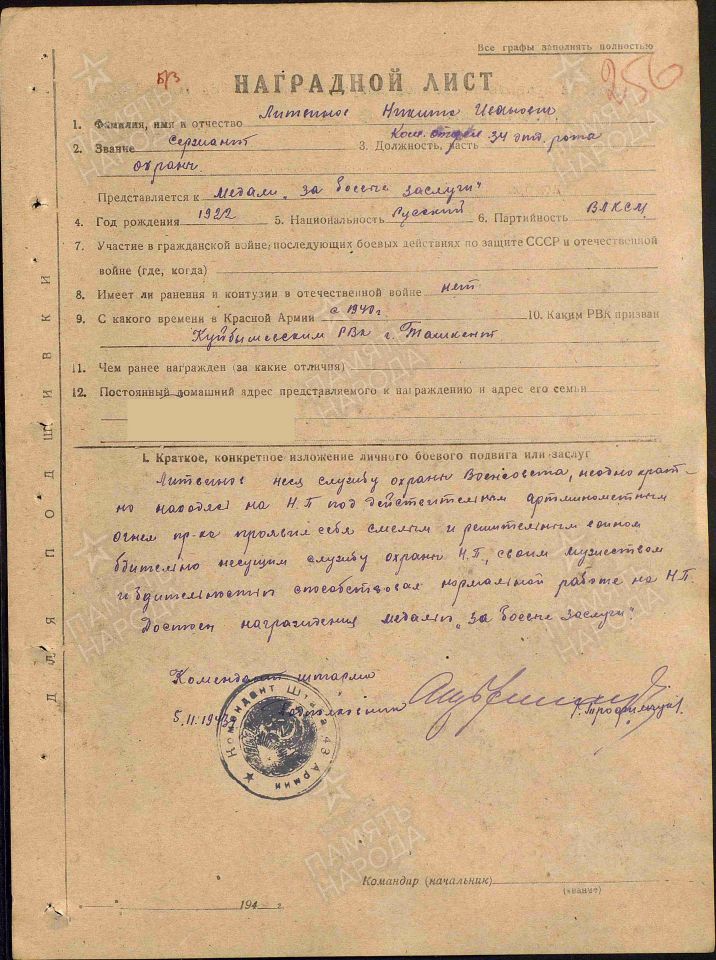 Все графы заполнять полностью
б/з
256
НАГРАДНОЙ ЛИСТ
1. Фамилия, имя и отчество Литвинов Никита Иванович
2. Звание Сержант 3. Должность, часть Ком. отдел 34 отд. рота
охраны
Представляется к Медали „За боевые заслуги"
4. Год рождения 1922 5. Национальность Русский 6. Партийность ВЛКСМ
7. Участие в гражданской войне, последующих боевых действиях по защите СССР и отечественной
войне (где, когда)
8. Имеет ли ранения и контузии в отечественной войне нет
9. С какого времени в Красной Армии с 1940 г 10. Каким РВК призван
Куйбышевским РВК г. Ташкент
11. Чем ранее награжден (за какие отличия)
12. Постоянный домашний адрес представляемого к награждению и адрес его семьи
I. Краткое, конкретное изложение личного боевого подвига или заслуг
Литвинов неся службу охраны Военсовета, неоднократ-
но находясь на Н.П под действительным артминометным
огнем пр-ка проявил себя смелым и решительным воином
бдительно несущим службу охраны Н.П, своим мужеством
и бдительностью способствовал нормальной работе на Н.П.
Достоин награждения медалью „За боевые заслуги".
Комендант штарма
5.11.1943г Подполковник
Комендант Штаба 43 Армии
Командир (начальник)
(звание)
194 г.
ДЛЯ ПОДШИВКИ
ПАМЯТЬ НАРОДА